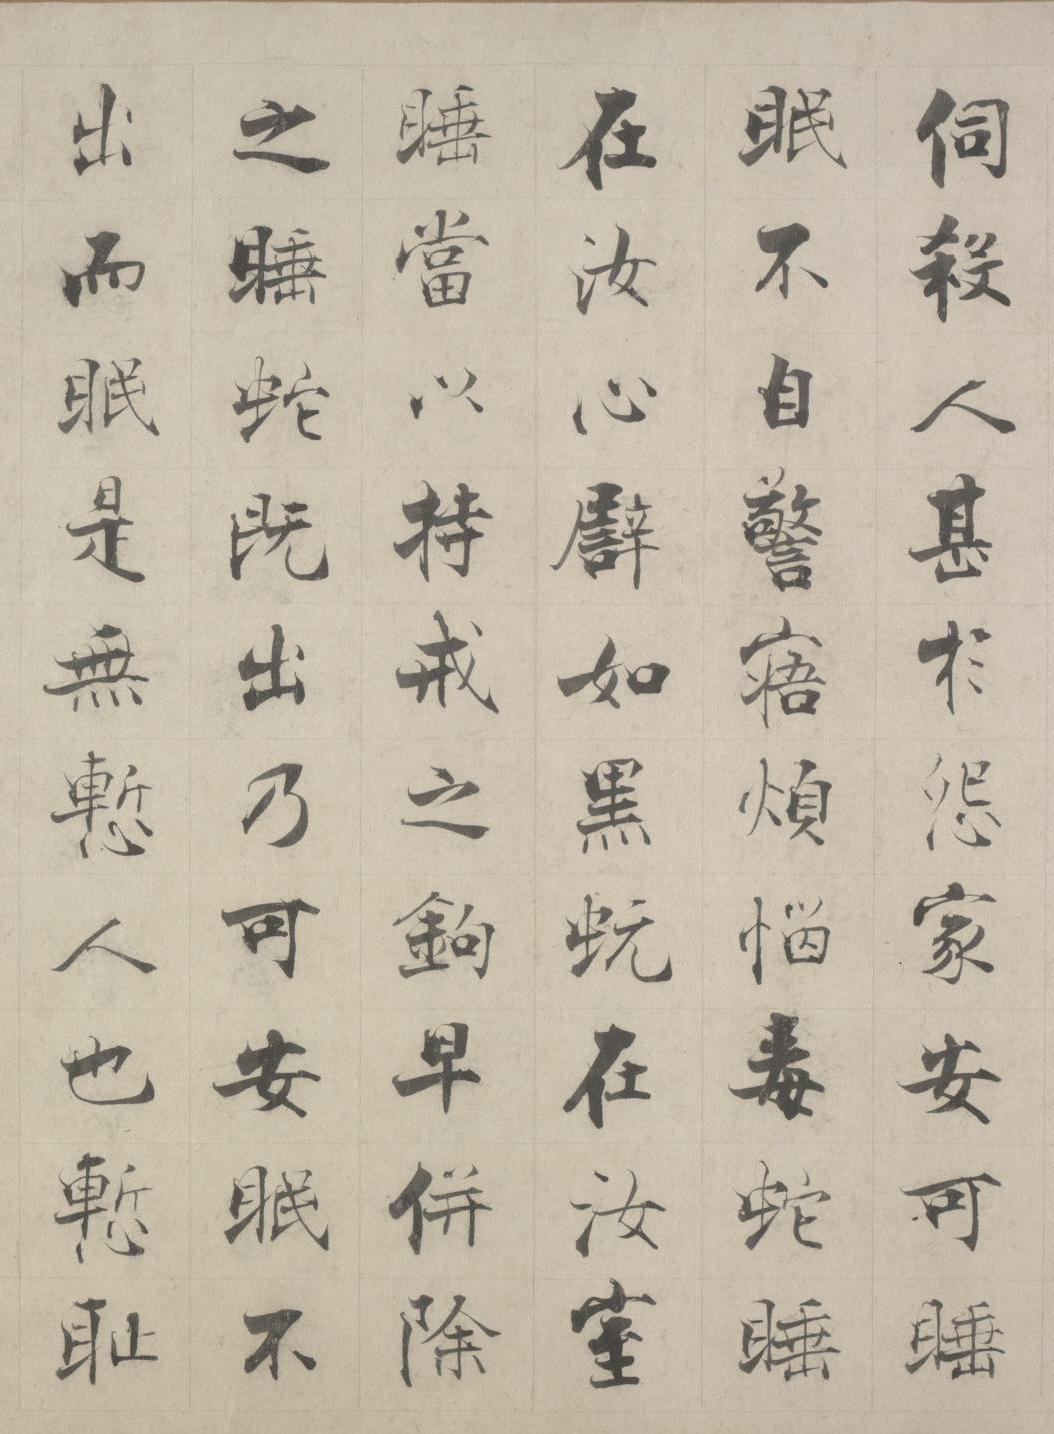 伺殺人甚於怨家安可睡
眠不自警寤煩惱毒蛇睡
在汝心譬如黑蚖在汝室
睡當以持戒之鉤早併除
之睡蛇既出乃可安眠不
出而眠是無慙人也慙耻